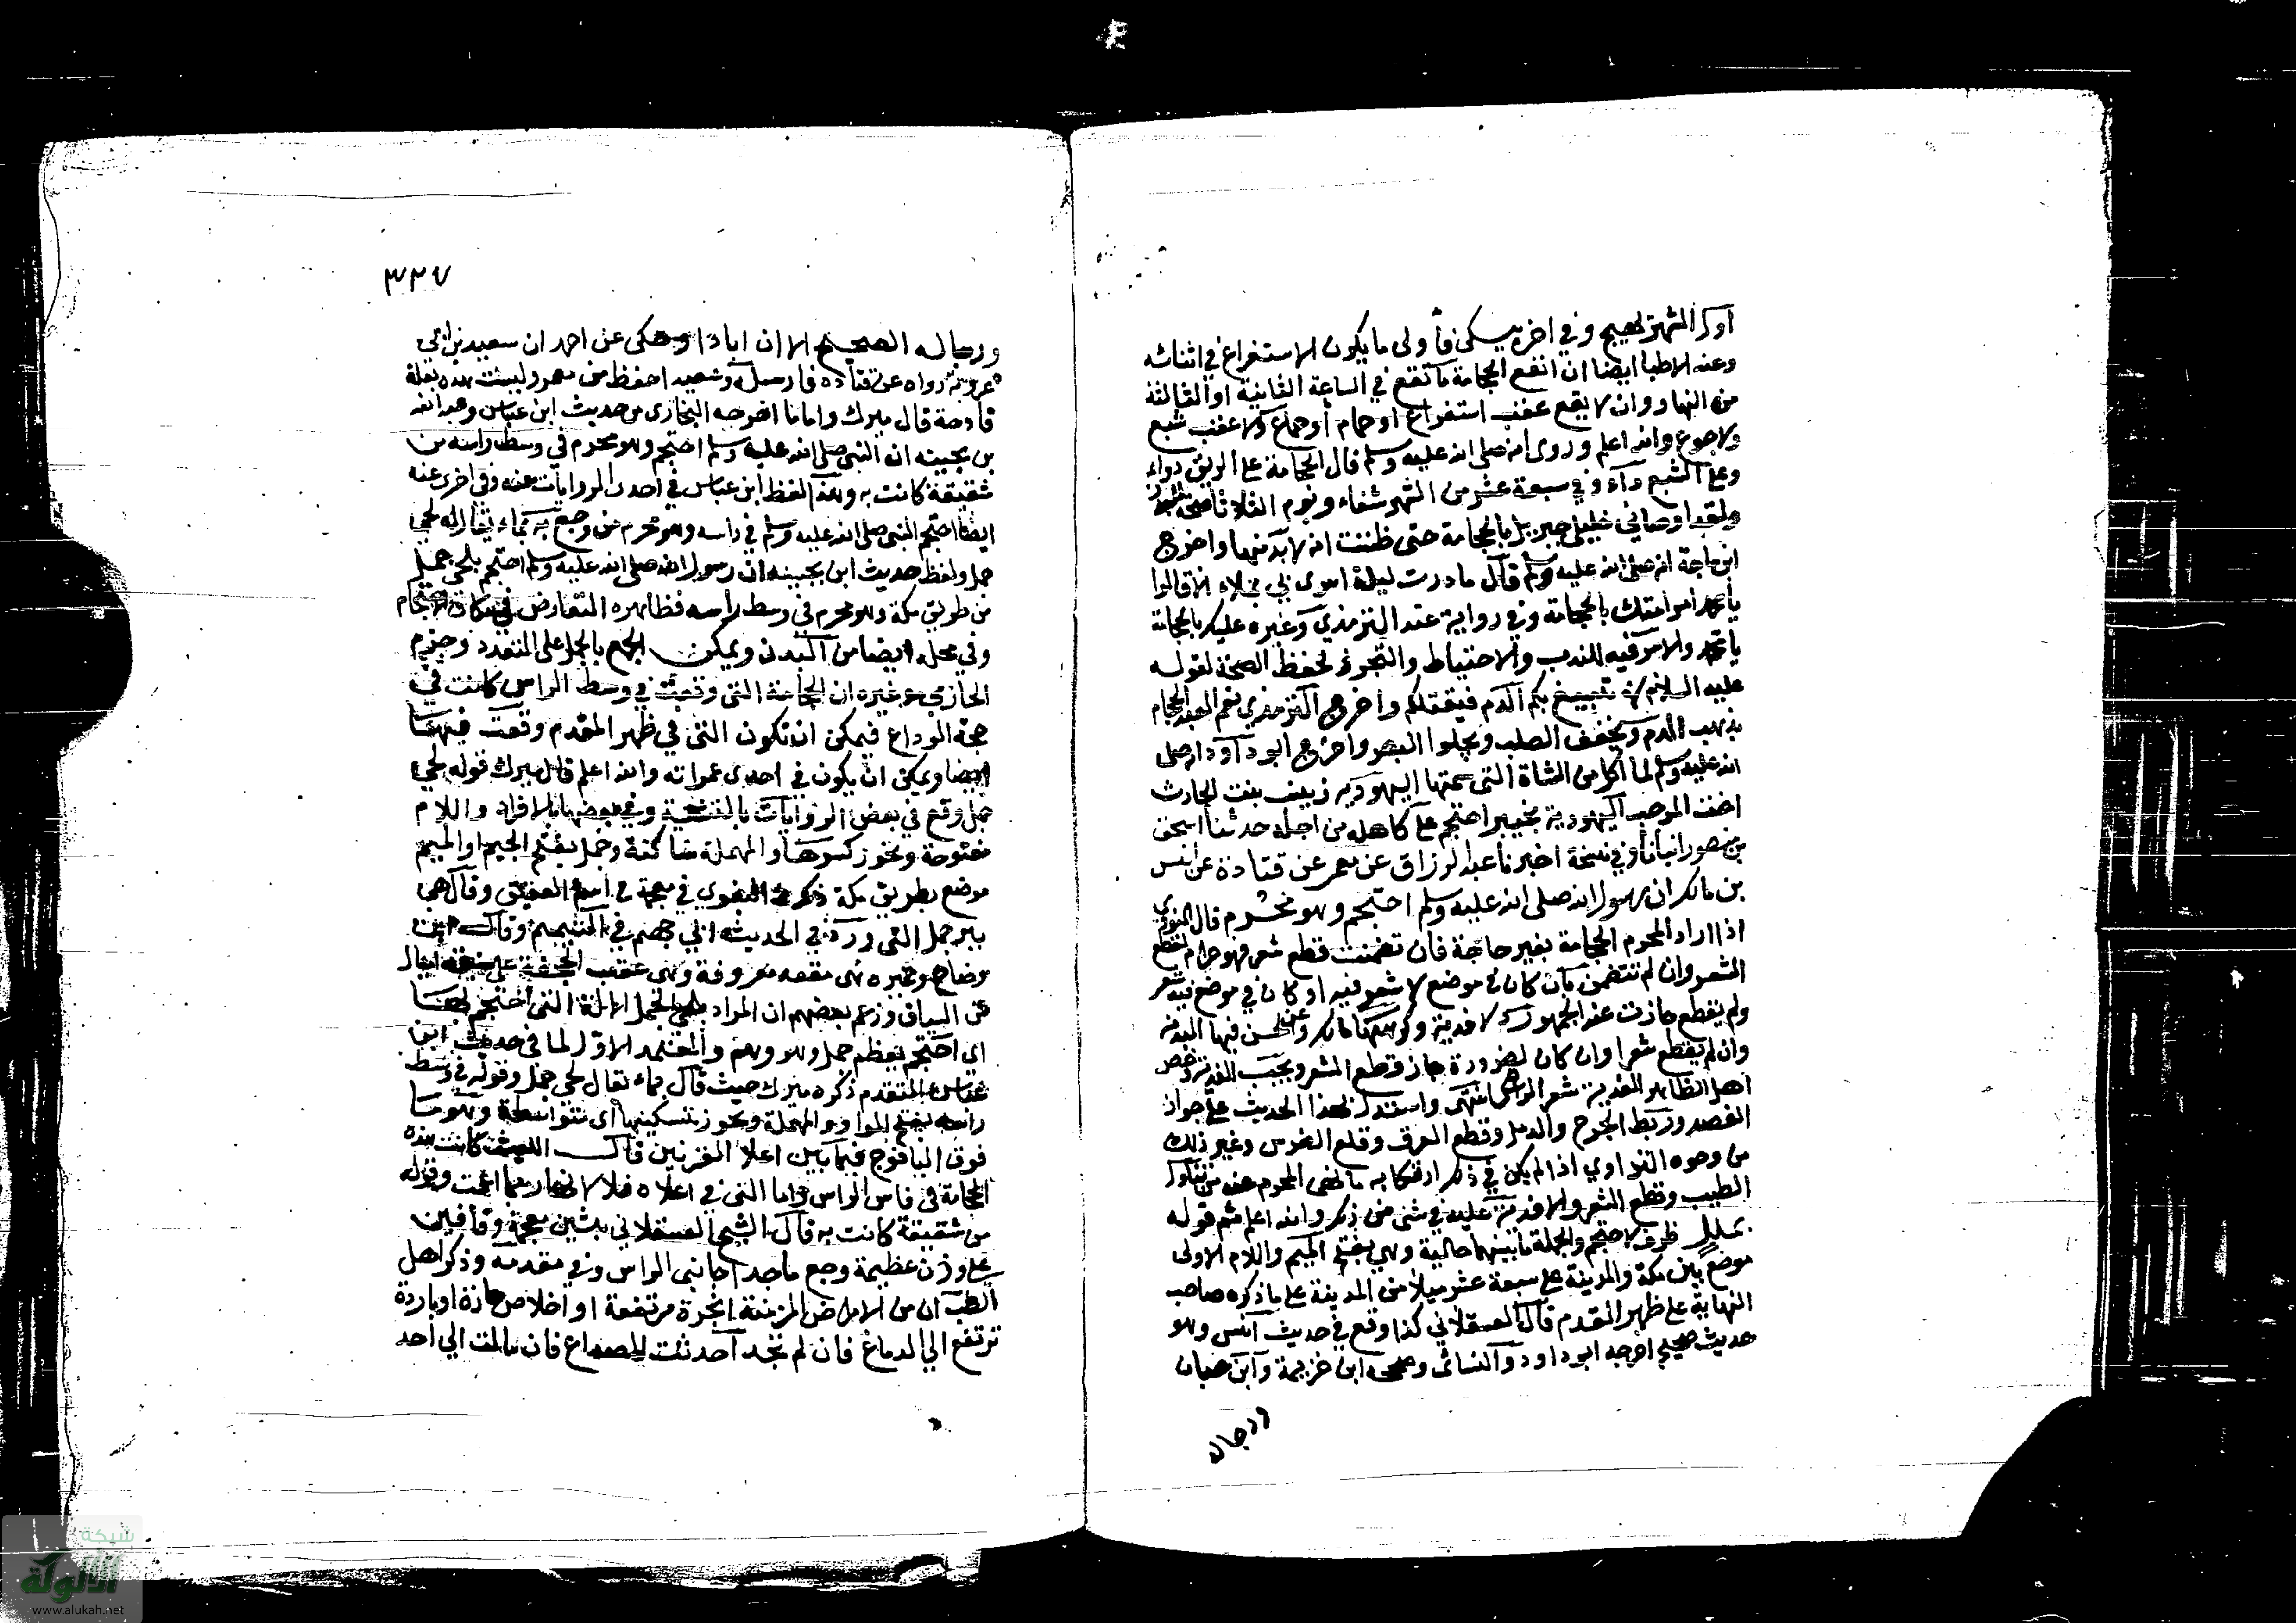 اول الشهر يهيج وفي اخره يسكن فأولى ما يكون الاستفراغ في اثنائه
وعند الاطبا ايضا ان انفع الحجامة ما تقع في الساعة الثانية او الثالثة
من النهار وان لا يقع عقب استفراغ او حمام أو جماع ولا عقب شبع
ولا جوع والله اعلم وروى انه صلى الله عليه وسلم قال الحجامة على الريق دواء
وعلى الشبع داء وفي سبعة عشر من الشهر شفاء ويوم الثلاثا صحة
ولقد اوصاني خليلي جبريل بالحجامة حتى ظننت انه لا بد منها واخرج
ابن ماجة انه صلى الله عليه وسلم قال ما مررت ليلة اسرى بي بملاء الا قالوا
يا محمد امر امتك بالحجامة وفي رواية عند الترمذي وغيره عليك بالحجامة
يا محمد والامر فيه للندب والاحتياط والتحرز لحفظ الصحة لقوله
عليه السلام لا يتبيغ بكم الدم فيقتلكم واخرج الترمذي نعم العبد الحجام
يذهب الدم ويخفف الصلب ويجلوا البصر واخرج ابو داود انه صلى
الله عليه وسلم لما اكل من الشاة التي سمتها اليهودية زينب بنت الحارث
اخت المرحب اليهودية بخيبر احتجم على كاهله من اجله حدثنا اسحق
بن منصور انبأنا وفي نسخة اخبرنا عبد الرزاق عن معمر عن قتادة عن انس
بن مالك ان رسول الله صلى الله عليه وسلم احتجم وهو محرم قال النووي
اذا اراد المحرم الحجامة بغير حاجة فان تضمنت قطع شعر فهو حرام لقطع
الشعر وان لم تتضمن بان كان في موضع لا شعر فيه او كان في موضع فيه شعر
ولم يقطع جازت عند الجمهور ولا فدية وكرهها مالك وعن الحسن فيها الفدية
وان لم يقطع شعرا وان كان لضرورة جاز قطع الشعر ويجب الفدية وخص
اهل الظاهر الفدية شعر الراس انتهى واستدل بهذا الحديث على جواز
الفصد وربط الجرح والدمل وقطع العرق وقلع الضرس وغير ذلك
من وجوه التداوي اذا لم يكن في ذلك ارتكاب ما نهى المحرم عنه من تناول
الطيب وقطع الشعر ولا فدية عليه في شى من ذلك والله اعلم ثم قوله
بملل ظرف لاحتجم والجملة ما بينهما حالية وهي بفتح الميم واللام الاولى
موضع بين مكة والمدينة على سبعة عشر ميلا من المدينة على ما ذكره صاحب
النهاية على ظهر القدم قال العسقلاني كذا وقع في حديث انس وهو
حديث صحيح اخرجه ابو داود والنسائى وصححه ابن خزيمة وابن حبان
ورجاله
٣٢٧
ورجاله الصحيح الا ان ابا داود حكى عن احمد ان سعيد بن ابي
عروبة رواه عن قتادة فارسله وسعيد احفظ من معمر وليست هذه بعلة
قادحة قال ميرك واما ما اخرجه البخارى من حديث ابن عباس وعبد الله
بن بحينه ان النبى صلى الله عليه وسلم احتجم وهو محرم في وسط راسه من
شقيقة كانت به وهذا لفظ ابن عباس في احدى الروايات عنه وفي اخرى عنه
ايضا احتجم النبى صلى الله عليه وسلم في راسه وهو محرم من وجع به بماء يقال له لحي
جمل ولفظ حديث ابن بحينه ان رسول الله صلى الله عليه وسلم احتجم بلحي جمل
من طريق مكة وهو محرم في وسط راسه فظاهره التعارض في مكان الاحتجام
وفي محله ايضا من البدن ويمكن الجمع بالحمل على التعدد وجزم
الحازمي وغيره ان الحجامة التي وقعت في وسط الراس كانت في
حجة الوداع فيمكن ان تكون التي في ظهر القدم وقعت فيها
ايضا ويمكن ان يكون في احدى عمراته والله اعلم قال ميرك قوله لحي
جمل وقع في بعض الروايات بالتثنية وفي بعضها بالافراد واللام
مفتوحة ويجوز كسرها والمهملة ساكنة وجمل بفتح الجيم والميم
موضع بطريق مكة ذكره البغوى في معجمه في اسم العقيق وقال هي
بير جمل التي ورد في الحديث ابي جهم في التيمم وقال ابن
وضاح وغيره هي بقعة معروفة وهي عقبة الجحفة على سبعة اميال
من السقيا وزعم بعضهم ان المراد بلحي الجمل الالة التي احتجم بها
اى احتجم بعظم جمل وهو وهم والمعتمد الاول لما في حديث ابن
عباس المتقدم ذكره ميرك حيث قال بماء يقال لحي جمل وقوله في وسط
راسه بفتح الواو والمهملة ويجوز تسكينها اى متواسطة وهو ما
فوق اليافوخ فيما بين اعلا القرنين قال الليث كانت هذه
الحجامة في فاس الراس واما التي في اعلاه فلا لانها ربما اعمت وقوله
من شقيقة كانت به قال الشيخ العسقلاني بشين معجمة وقافين
على وزن عظيمة وجع ما حد جانبى الراس وفي مقدمه وذكر اهل
الطب ان من الامراض المزمنة ابخرة مرتفعة او اخلاص حارة او باردة
ترتفع الى الدماغ فان لم تجد احدثت للصداع فان مالت الى احد
شبكة
الألوكة
www.alukah.net